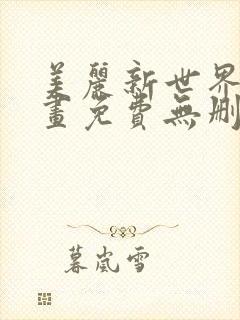 美麗新世界
畫免費無刪
暮嵐雪